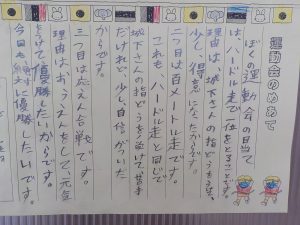 運動会のめあて
ぼくの運動会の目当て
は、ハードル走で一位をとることです。
理由は、城下さんの指どうもうけ、
少し、得意になったからです。
二つ目は百メートル走です。
これも、ハードル走と同じで
城下さんの指どうを受けて、苦手
だけれど、少し、自信がついた
からです。
三つ目は応えん合戦です。
理由は、おうえんをして、元気
をつけて優勝したいからです。
今日も絶対に優勝したいです。